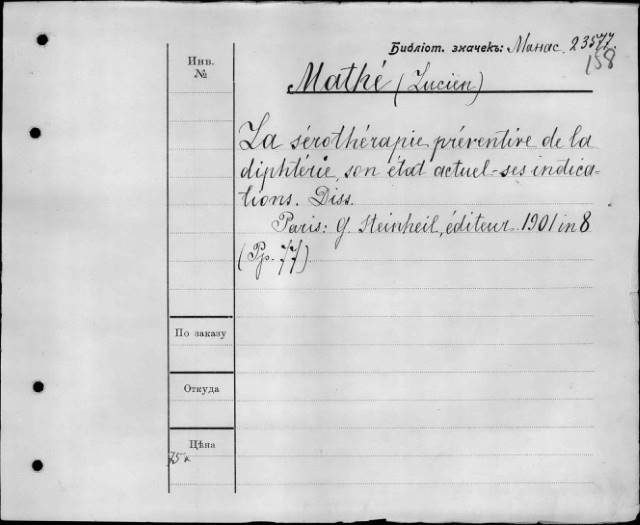 Библіот. значекъ: Манас. 23577.
158
Инв.
№
Mathé (Lucien)
La sérothérapie préventive de la
diphtérie, son état actuel - ses indica-
tions. Diss.
Paris: G. Steinheil, éditeur 1901 in 8
(Pp. 77)
По заказу
Откуда
Цѣна
75к